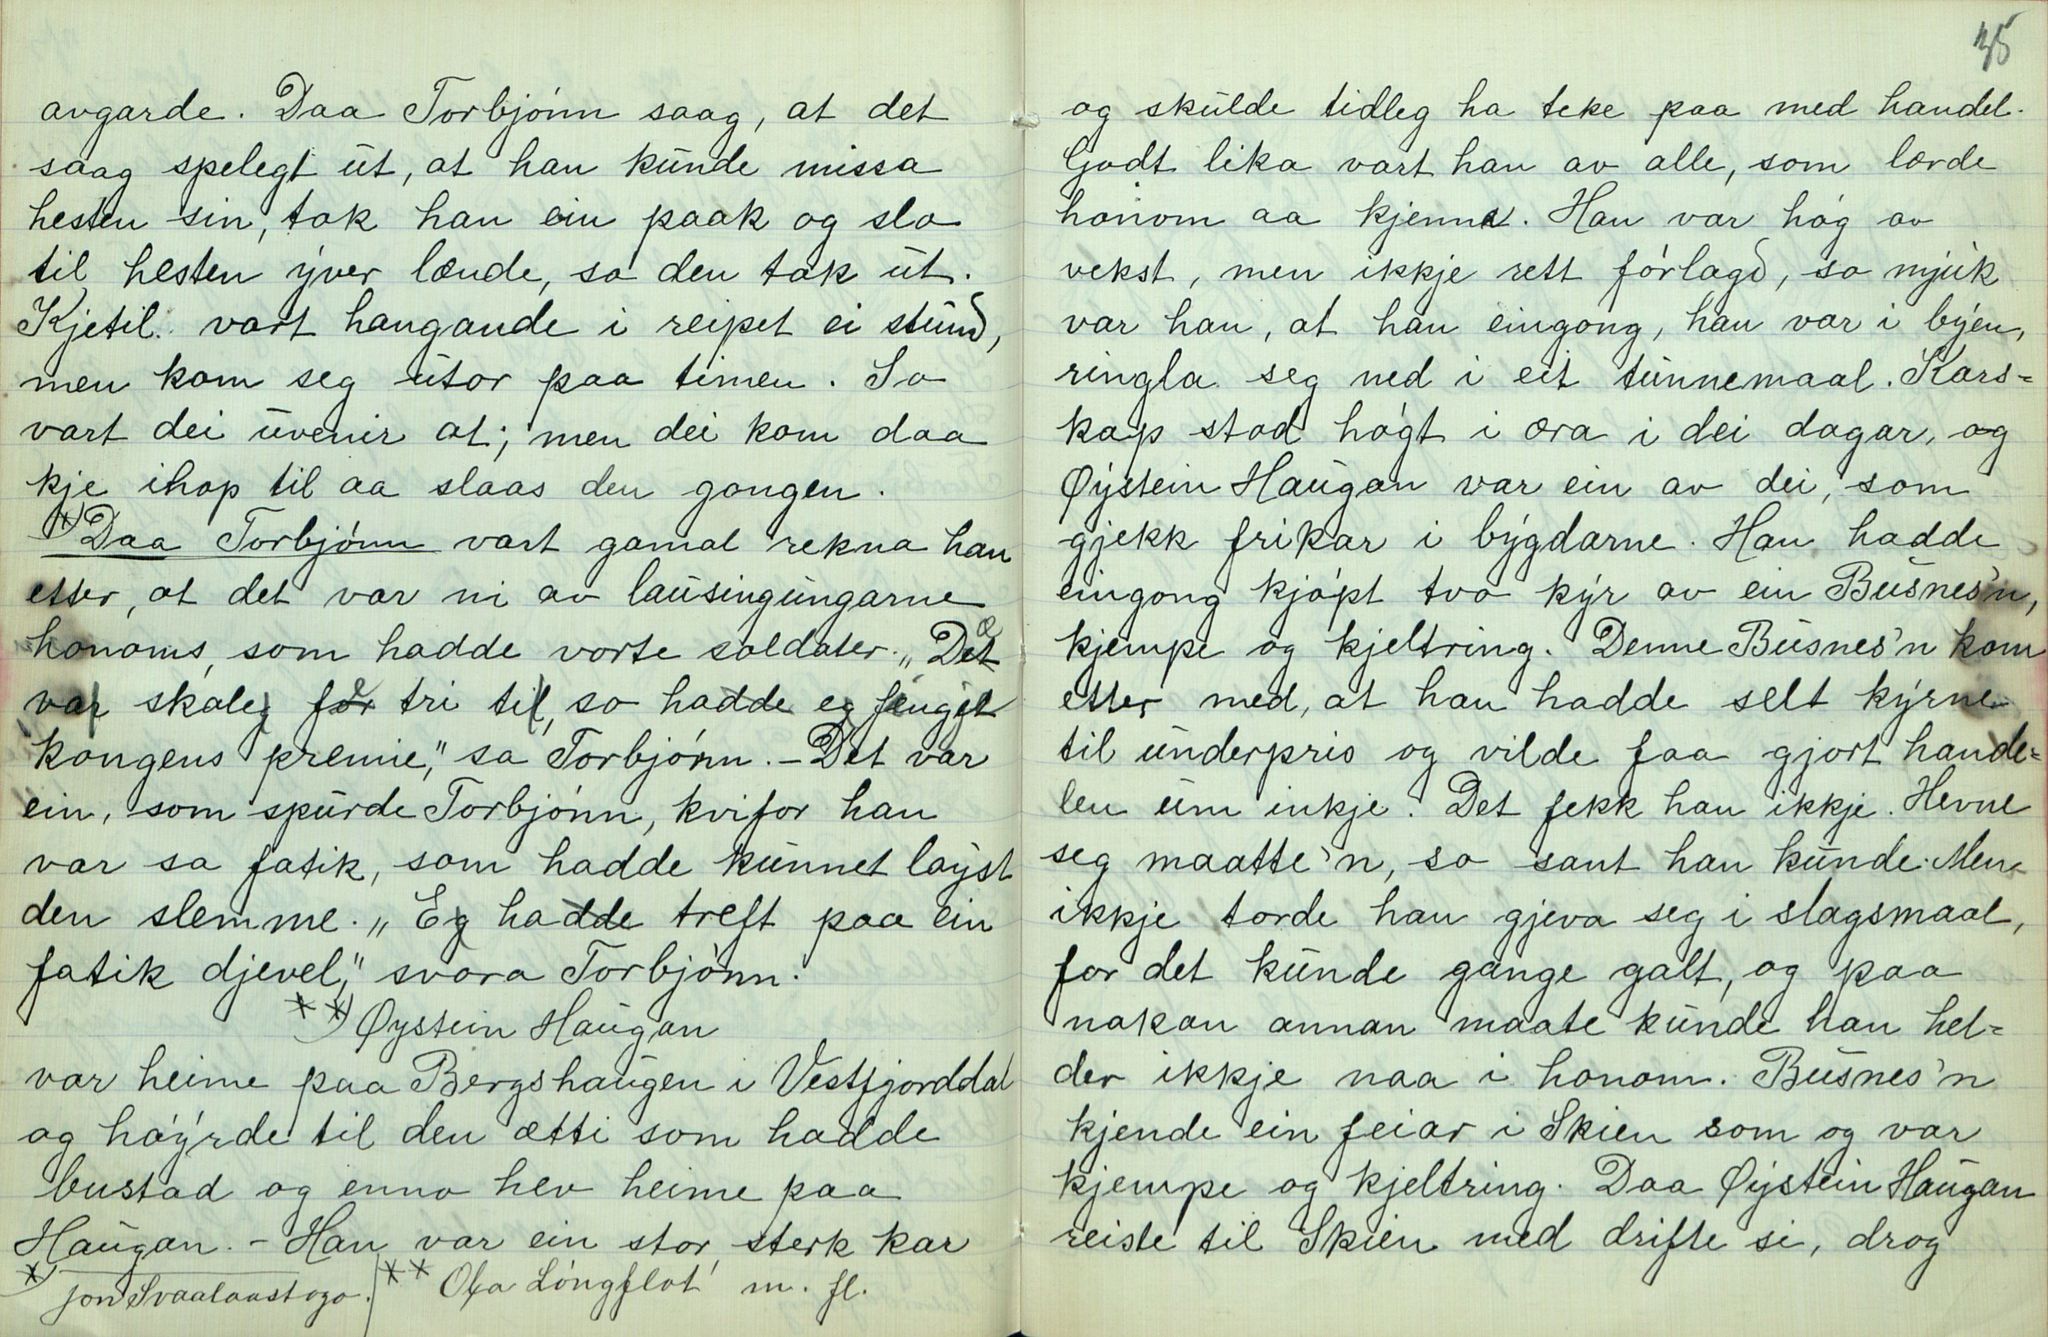 avgarde. Daa Torbjónn saag, at det
saag spelegt ut, at han kunde missa
hesten sin, tok han ein paak og slo
til hesten yver lænde, so den tok ut.
Kjetil vart hangande i reipet ei stund,
men kom seg utor paa timen. So
vart dei uvenir at; men dei kom daa
kje ihop til aa slaas den gongen.
*) Daa Torbjónn vart gamal rekna han
etter, at det var ni av lausingungarne
honoms, som hadde vorte soldater. „Det
var skaleg for tri til, so hadde eg fenget
kongens premie," sa Torbjónn. – Det var
ein, som spurde Torbjónn, kvifor han
var sa fatik, som hadde kunnet løyst
den slemme. „Eg hadde treft paa ein
fatik djevel," svora Torbjónn.
**) Øystein Haugan
var heime paa Bergshaugen i Vestfjorddal
og høyrde til den ætti som hadde
bustad og enno hev heime paa
Haugan. – Han var ein stor, sterk kar
*) Jon Svaalaastogo. ** Ola Lóngflot m. fl.
35
og skulde tidleg ha teke paa med handel.
Godt lika vart han av alle, som lærde
honom aa kjenna. Han var hóg av
vekst, men ikkje rett fórlagd, so mjuk
var han, at han eingong, han var i byen,
ringla seg ned i eit tunnemaal. Kars-
kap stod hógt i æra i dei dagar, og
Øystein Haugan var ein av dei, som
gjekk frikar i bygdarne. Han hadde
eingong kjópt tvo kyr av ein Busnes'n,
kjempe og kjeltring. Denne Busnes'n kom
etter med, at han hadde selt kyrne
til underpris og vilde faa gjort hande-
len um inkje. Det fekk han ikkje. Hevne
seg maatte'n, so sant han kunde. Men
ikkje torde han gjeva seg i slagsmaal,
for det kunde gange galt, og paa
nokon annan maate kunde han hel-
der ikkje naa i honom. Busnes'n
kjende ein feiar i Skien som og var
kjempe og kjeltring. Daa Øystein Haugan
reiste til Skien med drifte si, drog